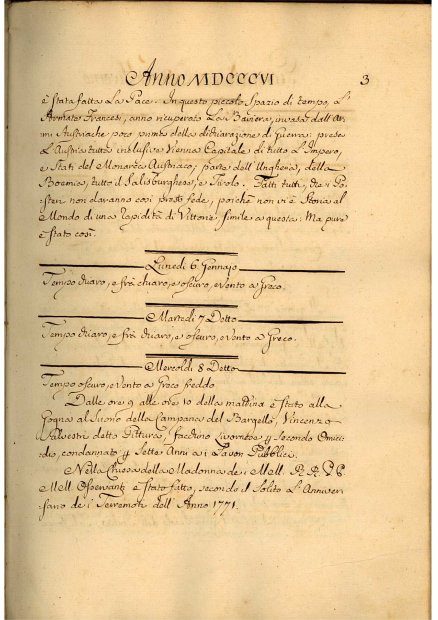 Anno MDCCCVI 3
è stata fatta La Pace. In questo piccolo Spazio di tempo, L'
Armate Francesi, anno ricuperato La Baviera, invasa dall'Ar
mi Austriache poco prima della dichiarazione di Guerra: presa
L'Austria tutta inclusive Vienna Capitale di tutto L'Impero,
e Stati del Monarca Austriaco; parte dell'Ungheria, della
Boemia, tutto il Salisburghese, e Tirolo. Fatti tutti, che i Po=
steri non daranno così presto fede, poichè non vi è Storia al
Mondo di una rapidità di Vittorie simile a questa: Ma pure
è stato così.
Lunedì 6 Gennajo
Tempo chiaro, e frà chiaro, e oscuro, e vento a Greco.
Martedì 7 Detto
Tempo chiaro, e frà chiaro, e oscuro, e vento a Greco.
Mercoldì 8 Detto
Tempo oscuro, e vento a Greco freddo
Dalle ore 9 alle ore 10 della mattina è stato alla
Gogna al Suono della Campana del Bargello, Vincenzo
Salvestri detto Pittura, facchino Livornese p secondo Omici=
dio, condannato p Sette Anni a i Lavori Pubblici.
Nella Chiesa della Madonna de i Mell. R. R. P. P.
Mell. Osservanti è stato fatto, secondo il Solito L'Anniver=
sario de i Terremoti dell'Anno 1771.